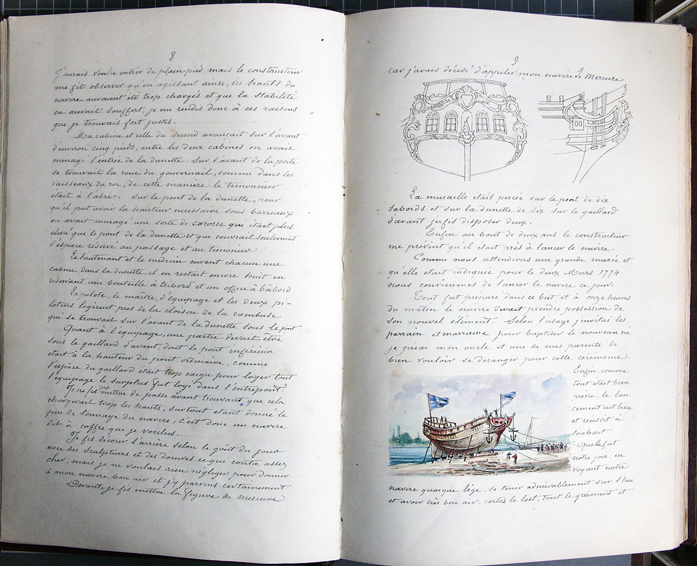 8
J'aurais voulu entrer de plain-pied mais le constructeur
me fit observer qu'en agissant ainsi, les hauts du
navire auraient été trop chargés et que la stabilité
en aurait souffert, je me rendis donc à ces raisons
que je trouvais fort justes.
Ma cabine et celle du second avançait sur l'avant
d'environ cinq pieds, entre les deux cabines on avait
ménagé l'entrée de la dunette. Sur l'avant de la porte
se trouvait la roue du gouvernail, comme dans les
vaisseaux du roi, de cette manière le timonnier
était à l'abri. Sur le pont de la dunette, pour
qu'il put avoir la hauteur nécessaire sous barreaux
on avait ménagé une sorte de carosse qui était plus
élevé que le pont de la dunette et que couvrait seulement
l'espace réservé au passage et au timonier.
Le lieutenant et le médecin eurent chacun une
cabine dans la dunette, il en restait encore huit en
réservant une bouteille à tribord et un office à babord
Le pilote, le maître d'équipage et les deux pi-
lotins logèrent près de la cloison de la cambuse
qui se trouvait sur l'avant de la dunette sous le pont
Quant à l'équipage, une partie devait être
sous le gaillard d'avant dont le pont inférieur
était à la hauteur du pont ordinaire, comme
l'espace du gaillard était trop exigu pour loger tout
l'équipage le surplus fut logé dans l'entrepont
pas mettre de passe avant trouvant que cela
chargeait trop les hauts, surtout étant donné le
peu de tonnage du navire, c'est donc un navire
dit à coffre que je voulus.
Je fis décorer l'arrière selon le goût du jour
avec des sculptures et des dorures, ce qui coûta assez
cher, mais je ne voulais rien négliger pour donner
à mon navire bon air et j'y parvins certainement
Devant, je fis mettre la figure de Mercure
9
car j'avais décidé d'appeler mon navire le Mercure
La muraille était percée sur le pont de six
sabords et sur la dunette de six sur le gaillard
d'avant j'en fis disposer deux.
Enfin au bout de deux ans le constructeur
me prévint qu'il était près à lancer le navire.
Comme nous attendions une grande marée et
qu'elle était indiquée pour le deux Mars 1774
nous convinmes de lancer le navire ce jour.
Tout fut préparé dans ce but et à onze heures
du matin, le navire devait prendre possession de
son nouvel élément. Selon l'usage j'invitai les
parrain et marraine pour baptiser le nouveau né
je priai mon oncle et une de mes parentes de
bien vouloir se déranger pour cette cérémonie.
Enfin, comme
tout était bien
réglé, le lan
cement eut lieu
et réussit à
souhait.
Quelle fut
notre joie en
voyant notre
navire quoique lège, se tenir admirablement sur l'eau
et avoir très bon air, certes le lest, tout le gréement et